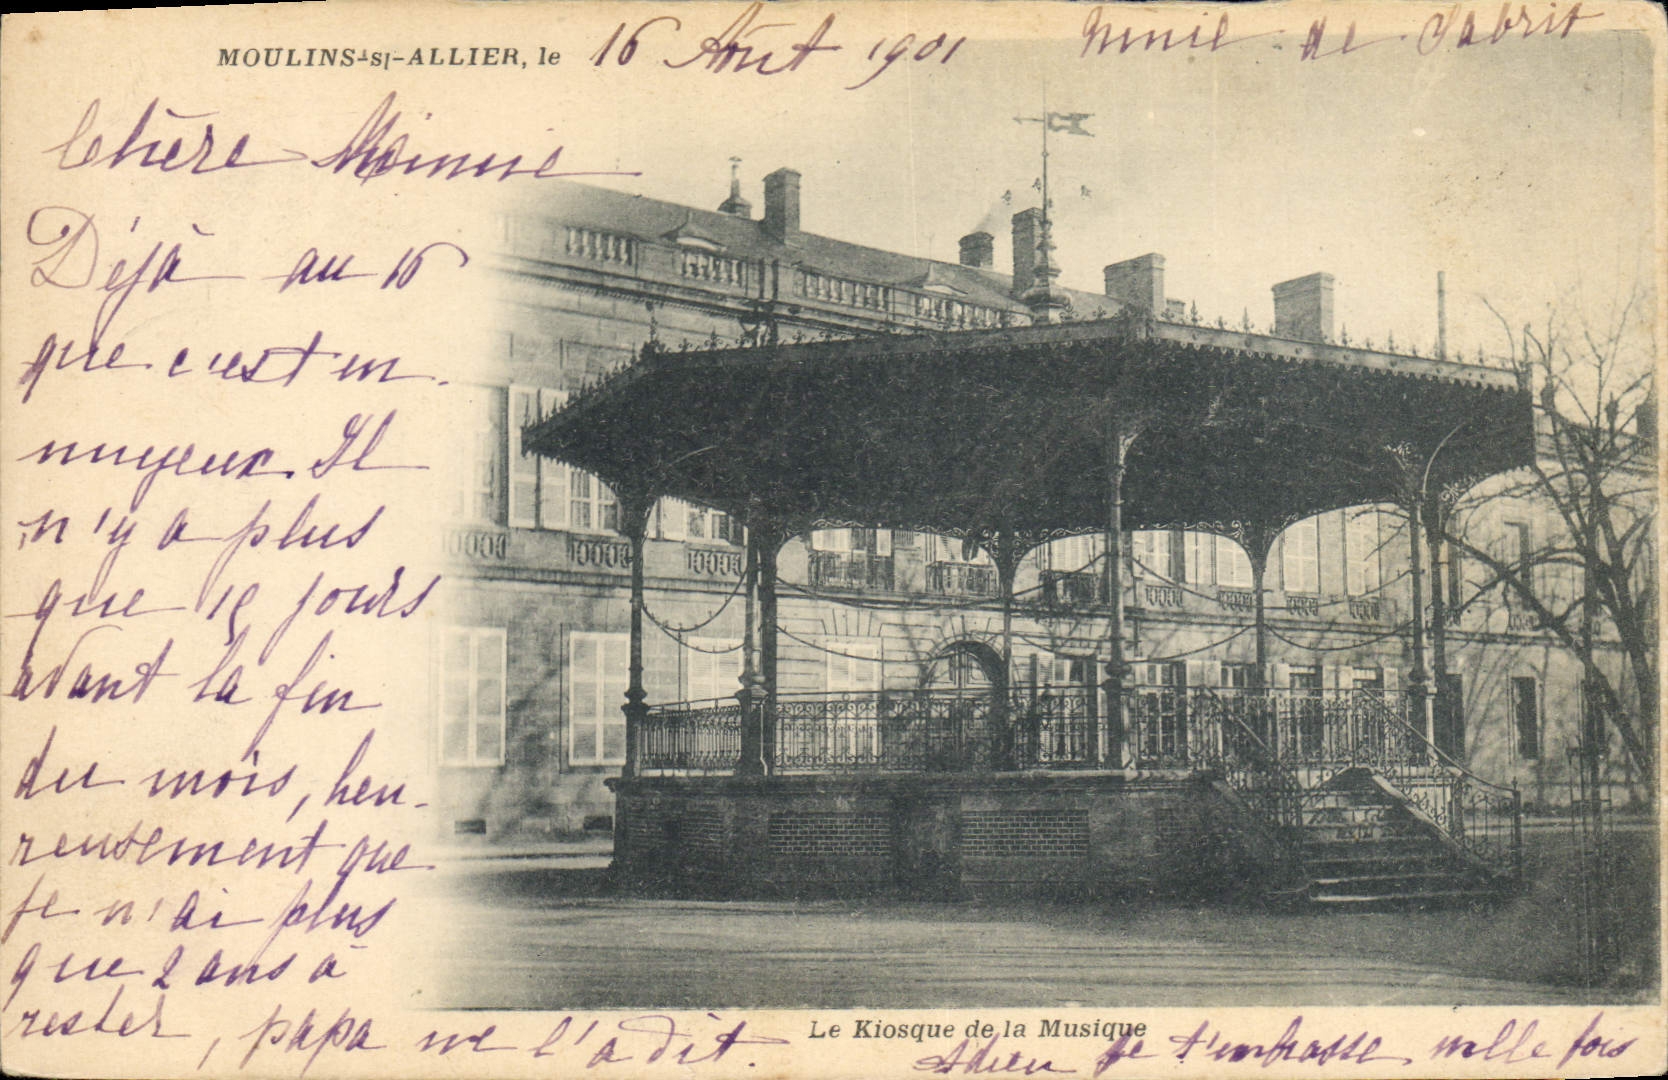 MOULINS-s/-ALLIER, le 16 Août 1901
de
Chère Mimie
Déjà au 16
que c'est en
nuyeux. Il
n'y a plus
que 15 jours
avant la fin
du mois, heu-
reusement que
je n'ai plus
que 2 ans à
rester, papa me l'a dit.
Le Kiosque de la Musique
Adieu je t'embrasse mille fois